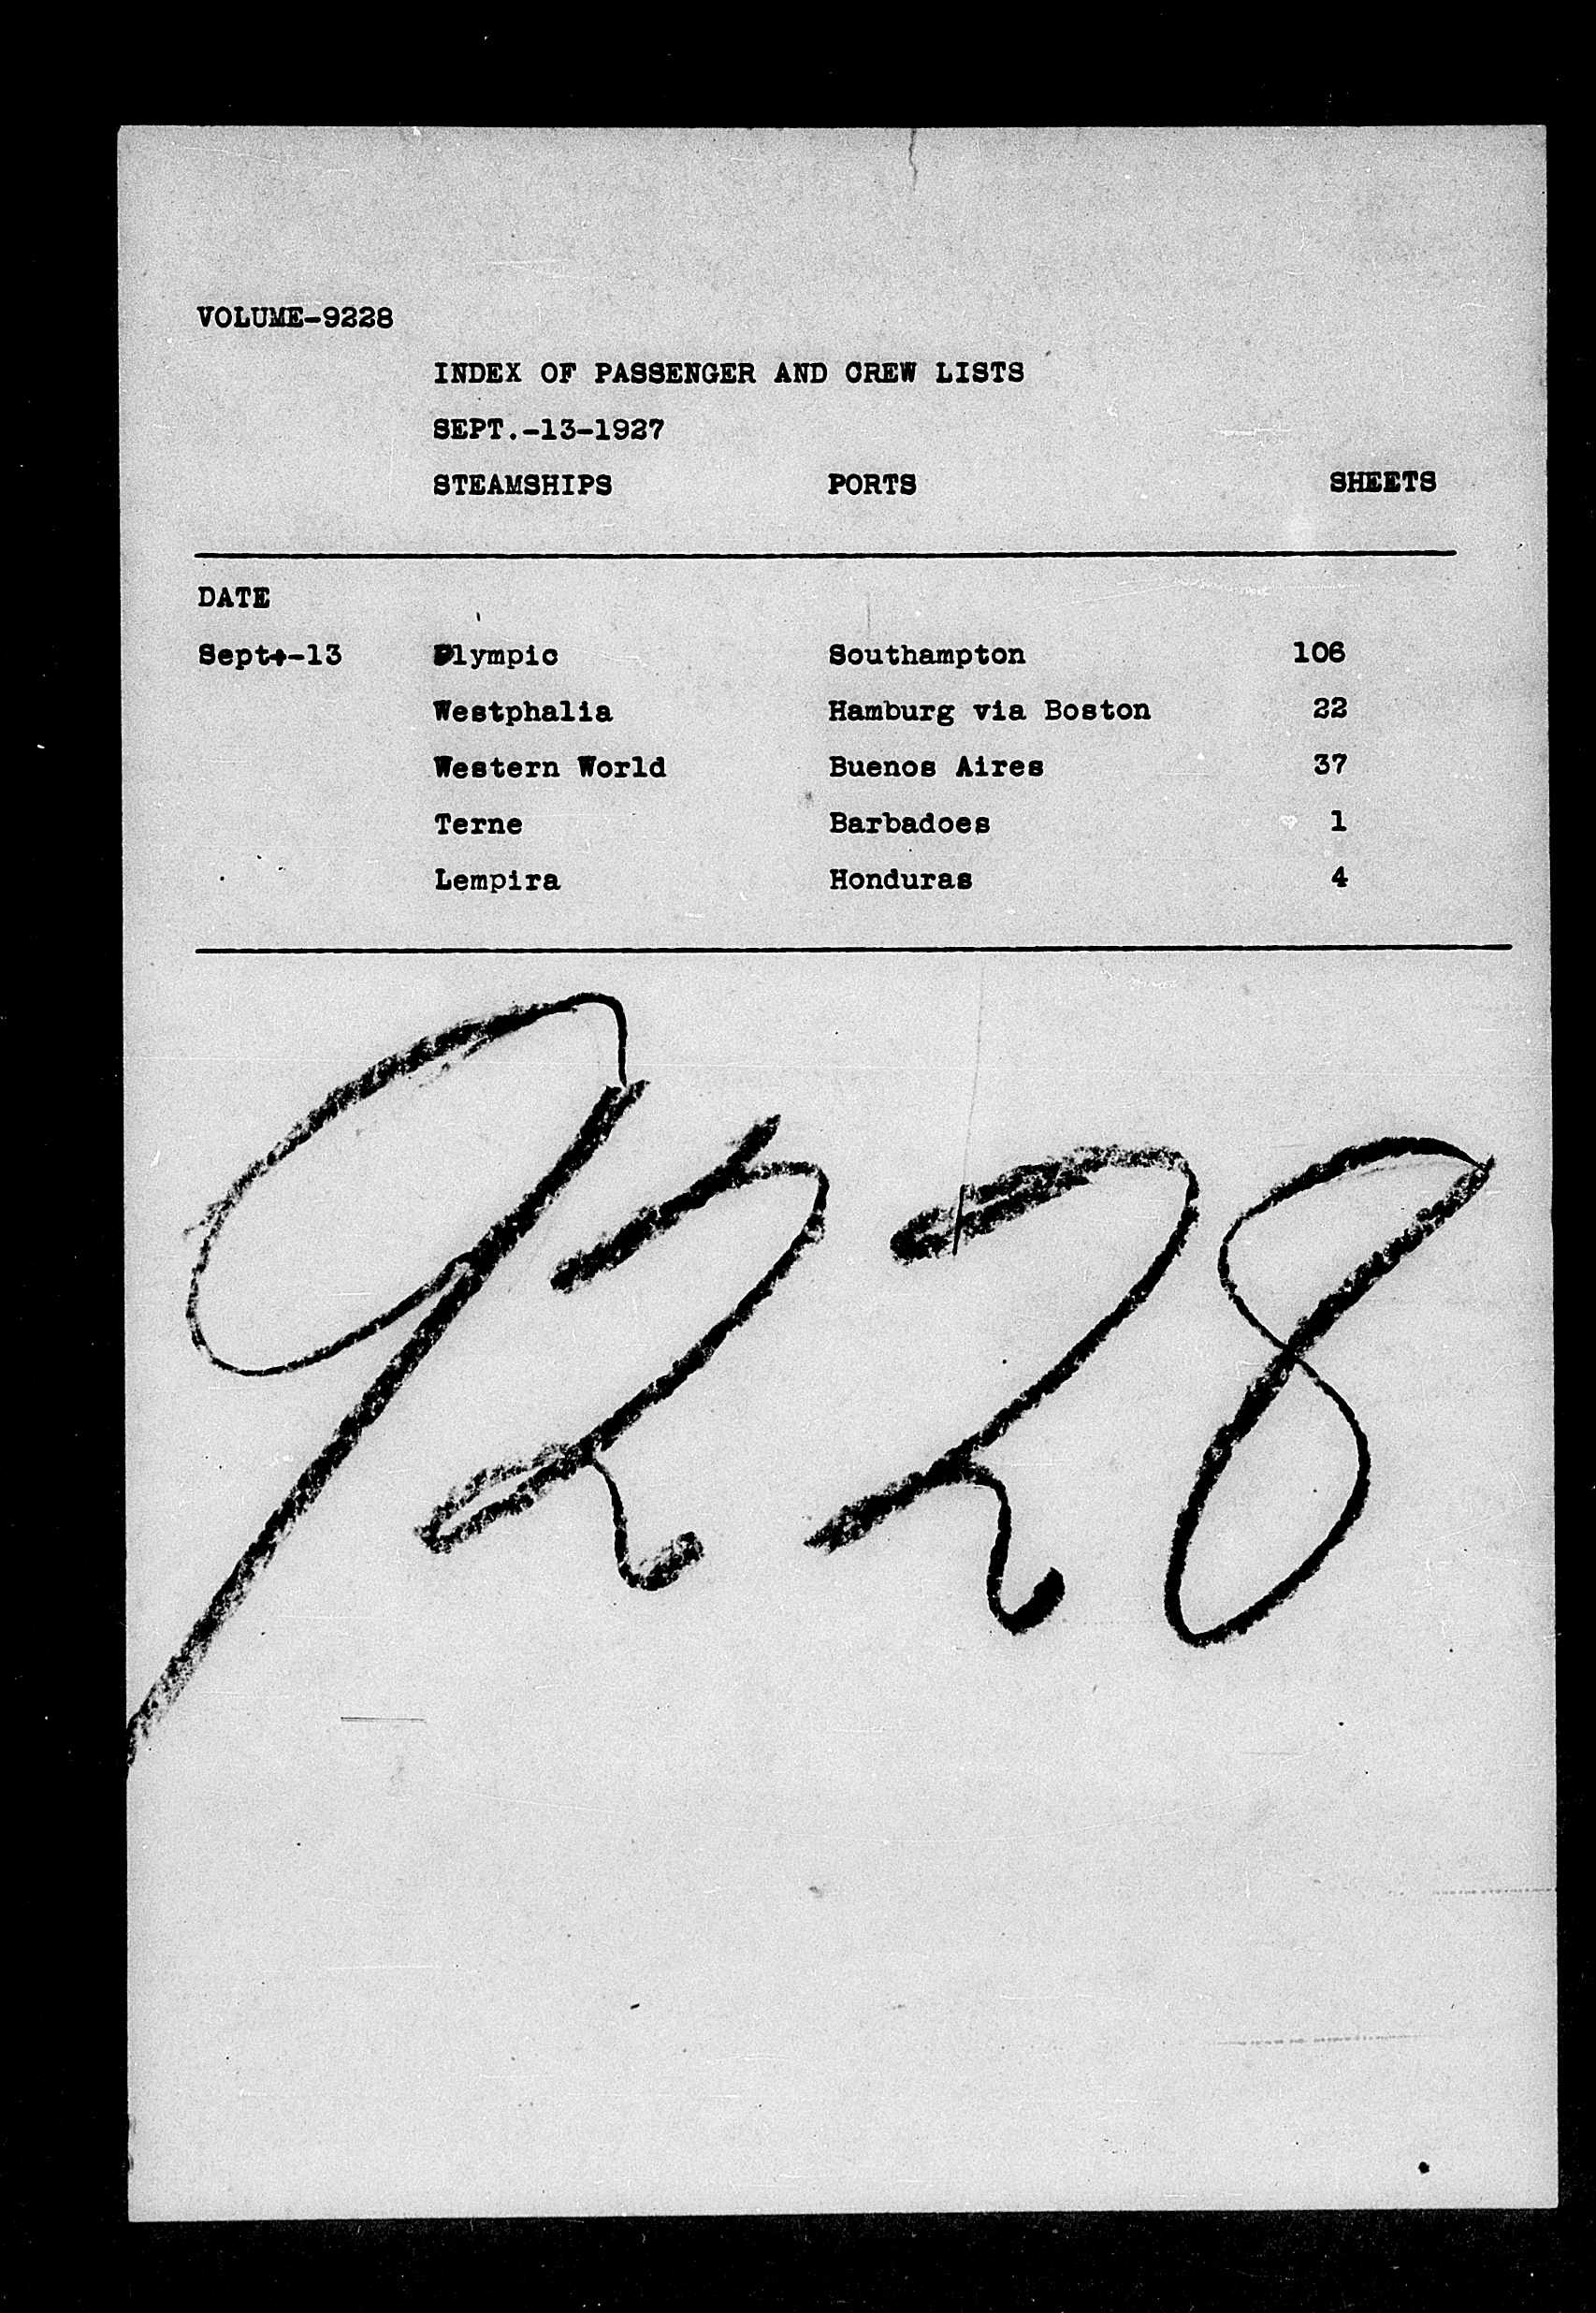 VOLUME-9228
INDEX OF PASSENGER AND CREW LISTS
SEPT.-13-1927
STEAMSHIPS PORTS SHEETS
DATE
Sept.-13 Olympic Southampton 106
Westphalia Hamburg via Boston 22
Western World Buenos Aires 37
Terne Barbadoes 1
Lempira Honduras 4
9228